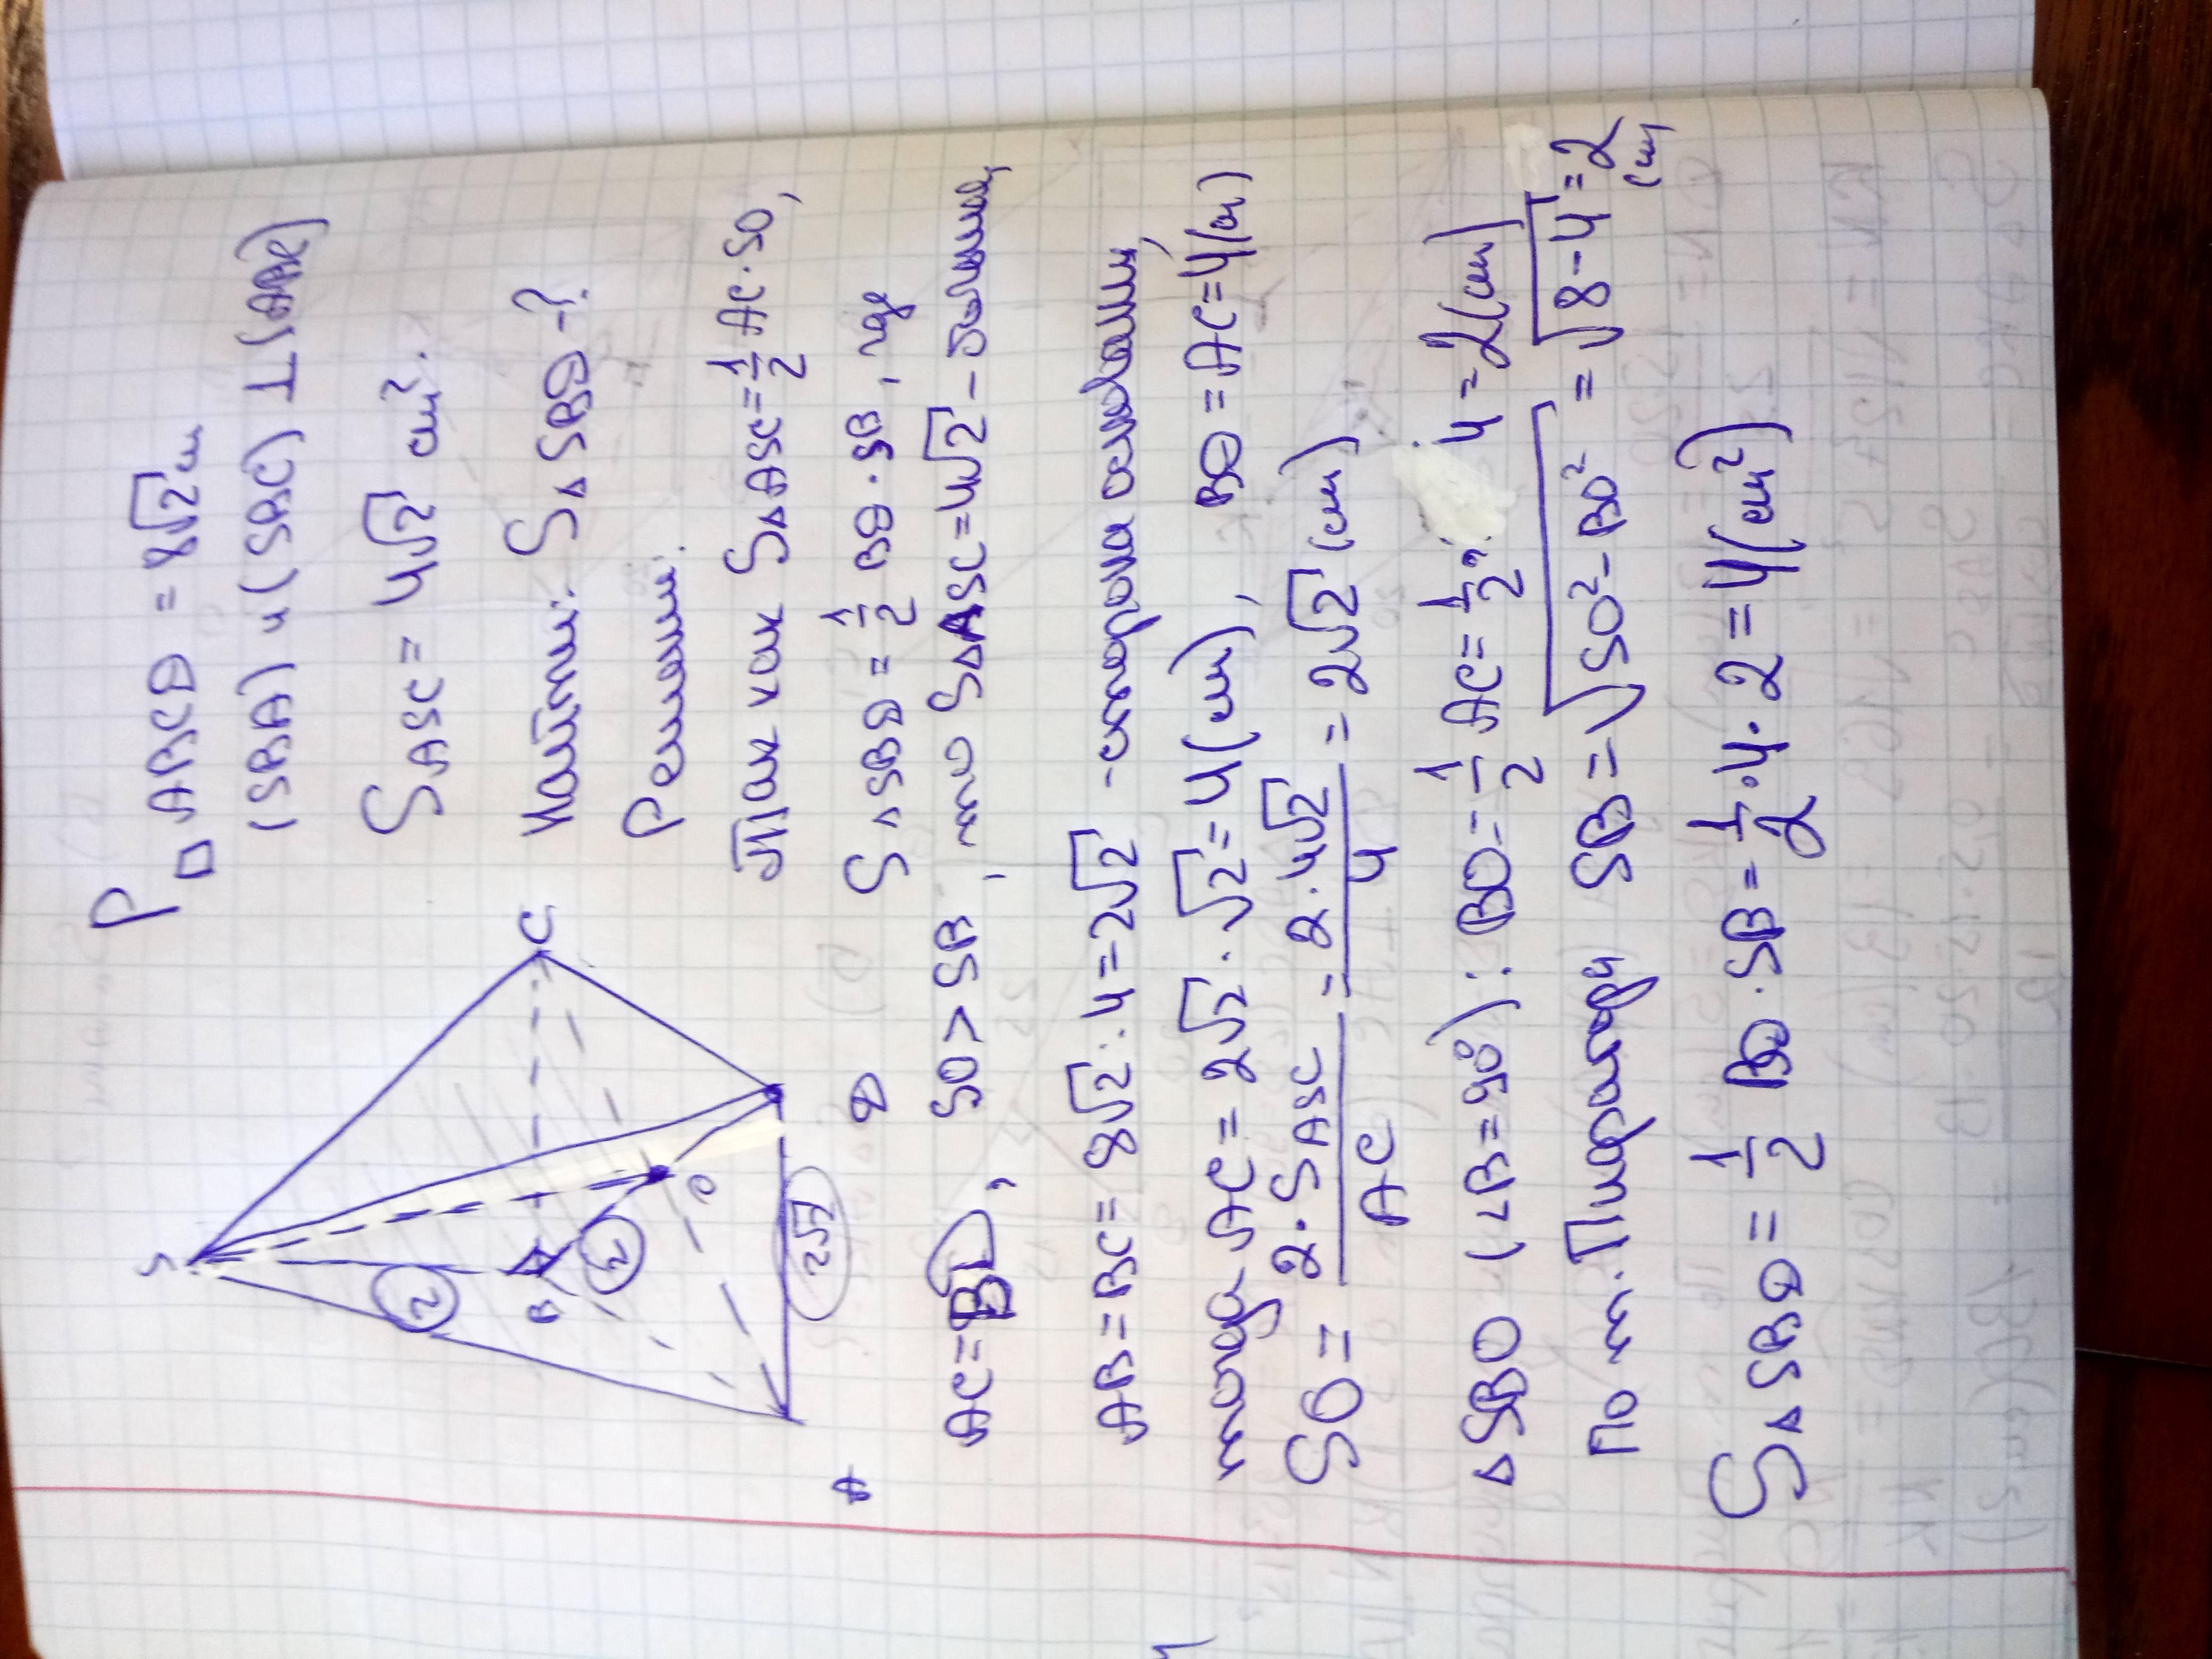 P□ABCD = 8√2 см
(SBA) и (SBC) ⊥ (ABC)
S ASC = 4√2 см².
Найти: S△SBD-?
Решение:
Так как S△ASC = 1/2 AC·SO,
S△SBD = 1/2 BD·SB, где
AC=BD, SO>SB, то S△ASC=4√2 - большая,
AB=BC= 8√2:4=2√2 -сторона основания,
тогда AC= 2√2·√2=4(см), BD=AC=4(см)
SO= 2·S ASC / AC = 2·4√2 / 4 = 2√2 (см)
△SBO (∠B=90°): BO= 1/2 AC= 1/2 · 4=2(см)
По т. Пифагора SB=√SO²-BO² = √8-4 =2 (см)
S△SBD= 1/2 BD·SB= 1/2·4·2=4(см²)
S
C
B
2
2
O
A
D
2√2